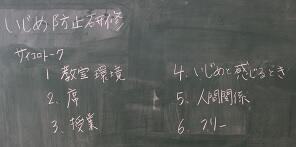 いじめ防止研修
サイコロトーク
1 教室環境
2. 席
3. 授業
4. いじめと感じるとき
5. 人間関係
6. フリー